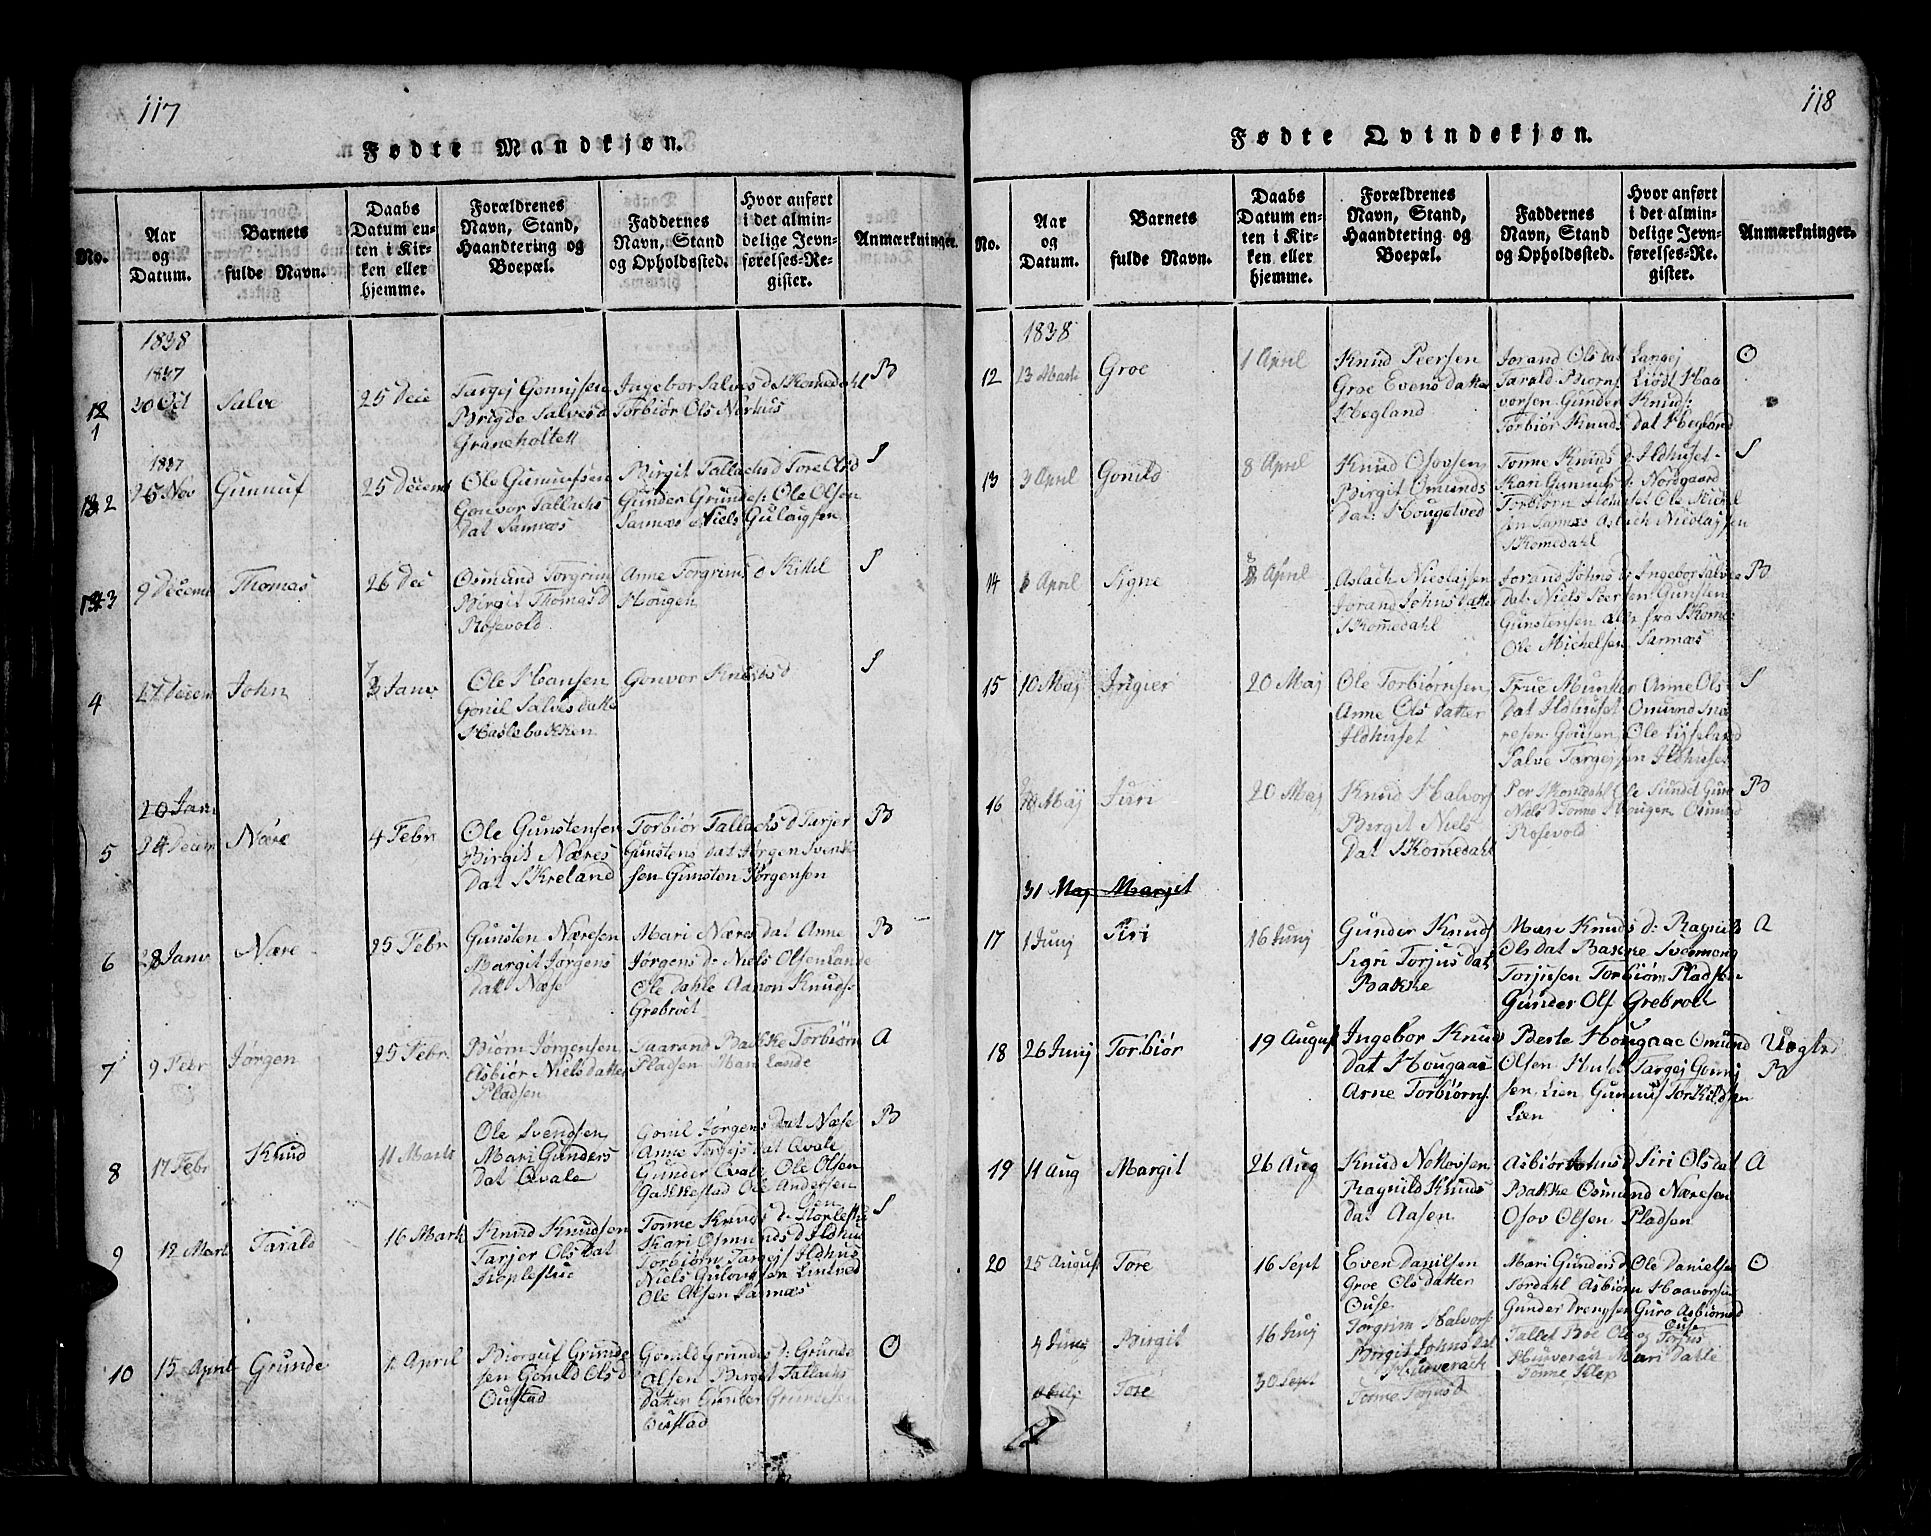 117
Fødte Mandkjøn.
No.
Aar og Datum.
Barnets fulde Navn.
Daabs Datum enten i Kirken eller hjemme.
Forældrenes Navn, Stand, Haandtering og Boepæl.
Faddernes Navn, Stand og Opholdssted.
Hvor anført i det almindelige Jevnførelses-Register.
Anmærkninger.
1838
1837
1
30 Oct
Salve
25 Dece
Targej Gonnjsen
Brigde Salvesd
Graneholtet
Ingebor Salves d Skomedahl
Torbiør Ols
B
1837
2
26 Nov
Gunnuf
25 Decemb
Ole Gunnufsen
Gonvor Tallachs
dat Samnæs
Birgit Tallachsd Tore Olsd
Gunder Grundes: Ole Olsen
Samnæs Niels Gulaugsen
S
3
9 Decemb
Thomas
26 Dec
Osmund Torgrims
Birgit Thomas d
Rosevold
Anne Torgrims d Kittil
Hougen
S
4
17 Decem
John
Janv
Ole Hansen
Gonil Salves datt
Haslebakken
Gonvor Knudsd
S
20 Janv
5
24 Decem
Nære
4 Febr
Ole Gunstensen
Birgit Næres
dat Skreland
Torbiør Tallachs d Tarjer
Gunstens dat Jørgen Svend
sen Gunsten Jørgensen
B
6
28 Janv
Nære
25 Febr
Gunsten Næresen
Margit Jørgens
datt Næse
Mari Næres dat Anne
Jørgens d: Niels Olsen Lande
Ole Dahle Aanon Knuds:
Grebrot
B
7
9 Febr
Jørgen
25 Febr.
Biørn Jørgensen
Asbiør Niels datter
Pladsen
Taarand Bakke Torbiørn
Pladsen Mari Lande
A
8
17 Febr
Knud
11 Marts
Ole Svendsen
Mari Gunders
dat Qvale
Gonil Jørgens dat Næse
Anne Torgejs dat Qvale
Gunder Qvale Ole Olsen
Gakkestad Ole Andersen
B
9
12 Mart
Tarald
16 Mark
Knud Knudsen
Tarjer Ols dat
Stoplestue
Tonne Knuds d: Stoplestu
Kari Osmunds d Ildhus
Torbiørn Targejs Ildhus
Niels Gulougsen Lintved
Ole Olsen Samnæs
S
10
15 April
Grunde
1 April
Biorguf Grunde
sen Gonild Ols d
Oustad
Gonild Grundes d: Grunde
Olsen Birgit Tallachs
datter Gunder Grundesen
Oustad
O
118
Fødte Qvindekjøn.
No.
Aar og Datum.
Barnets fulde Navn.
Daabs Datum enten i Kirken eller hjemme.
Forældrenes Navn, Stand, Haandtering og Boepæl.
Faddernes Navn, Stand og Opholdssted.
Hvor anført i det almindelige Jevnførelses-Register.
Anmærkninger.
1838
12
13 Marts
Groe
1 April
Knud Peersen
Groe Evens datter
Hegland
Jorand Ols dat Langej
Tarald Biørns Liødt Haa
vorsen Gunder Knuds:
Torbiør Knuds dat Hegland
O
13
3 April
Gonild
8 April
Knud Osovsen
Birgit Omunds
dat: Hougetved
Tonne Knuds d: Ildhuset
Kari Gunnufs d: Nordgaard
Torbiørn Ildhuset Ole Michel
sen Samnæs Aslach Nicolajsen
Skomedahl
S
14
April
Signe
8 April
Aslach Nicolajsen
Jorand Johns datte
Skomedahl
Jorand Johns d: Ingebor Salves
dat Niels Peersen Gunsten
Gunstensen alle fra Skome:
Ole Michelsen Samnæs
B
15
10 Maj
Irigier
20 Maj
Ole Torbiørnsen
Anne Ols datter
Ildhuset
Frue Munk Anne Ols
dat Ildhuset Omund
Ole Lisseland
Salve Targejsen Ildhuset
S
16
Maj
Juri
20 Maj
Knud Halvors
Birgit Niels
dat Skomedahl
Per Skomdahl Ole Sundet Gun
Niels d Tonne Hougen Osmund
Rosevold
B
31 Maj Margit
17
1 Junj
Siri
16 Junj
Gunder Knuds
Sigri Torjus dat
Bakke
Mase Knuds d: Ragnild
Ols dat Bakke
Torjusen Torbiørn Pladsen
Gunder Ols Grebrot
A
18
26 Junj
Torbiør
19 August
Ingebor Knud
dat Hougaae
Arne Torbiørns
Berte Hougaae Omund
Olsen Targej Gonnj
sen Lien Gunnuf Torkildsen
Lien
Uægte
B
19
11 Aug
Margit
26 Aug
Knud Nottovsen
Ragnild Knuds
dat Aasen
Asbiør Johnsd Siri Olsdat
Bakke Osmund Næresen
Osov Olsen Pladsen
A
20
25 August
Tore
16 Sept
Even Danilsen
Groe Ols datter
Ouse
Mari Gunders d Ole Danielsen
Tordahl Asbiørn Haavorsen
Gunder Drengsen Guro Asbiørnsd
Ouse
O
4 Junj
Birgit
16 Junj
Torgrim Halvors
Birgit Johns dat
Hunverack
Tallet Boe Ole og Torjus
Hunverack Mari Dahle
Tore
30 Sept
Tonne Torjusd
Tonne Klep